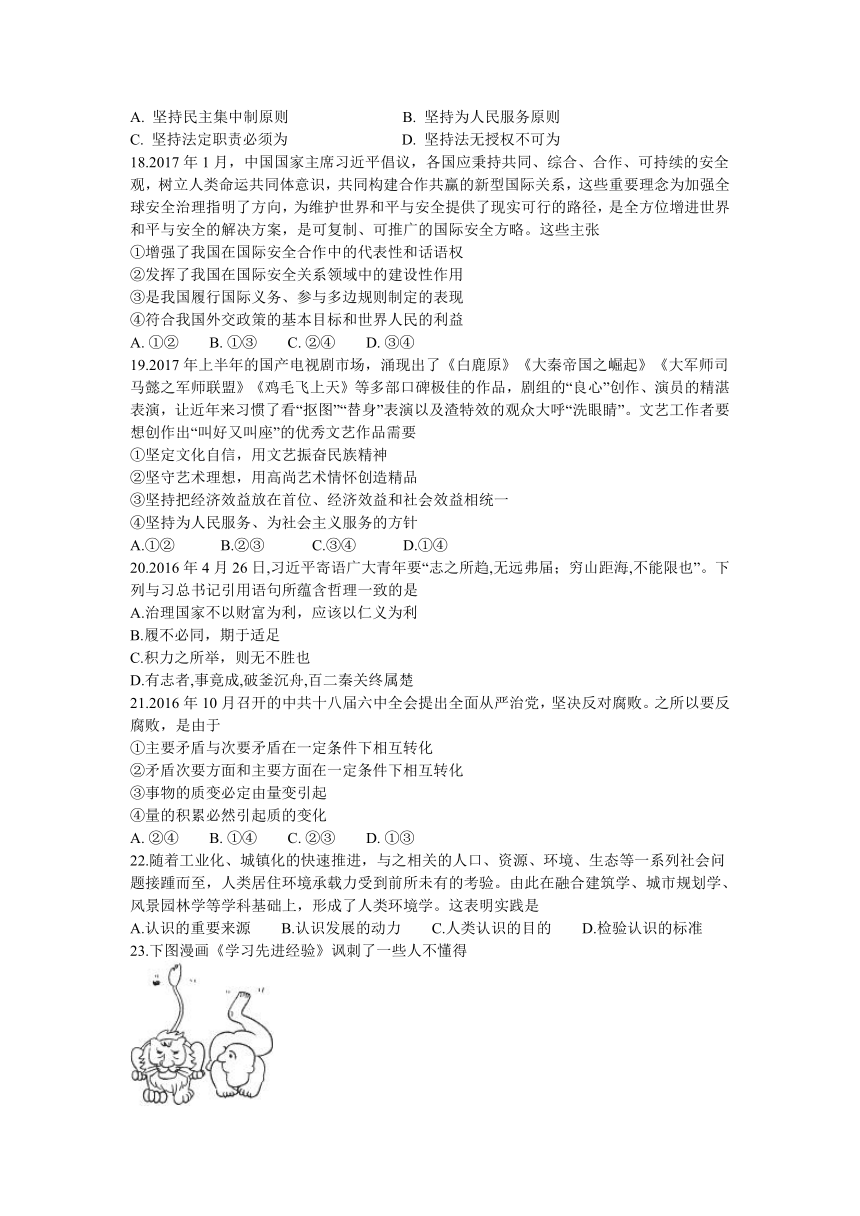 A. 坚持民主集中制原则 B. 坚持为人民服务原则
C. 坚持法定职责必须为 D. 坚持法无授权不可为
18.2017年1月，中国国家主席习近平倡议，各国应秉持共同、综合、合作、可持续的安全
观，树立人类命运共同体意识，共同构建合作共赢的新型国际关系，这些重要理念为加强全
球安全治理指明了方向，为维护世界和平与安全提供了现实可行的路径，是全方位增进世界
和平与安全的解决方案，是可复制、可推广的国际安全方略。这些主张
①增强了我国在国际安全合作中的代表性和话语权
②发挥了我国在国际安全关系领域中的建设性作用
③是我国履行国际义务、参与多边规则制定的表现
④符合我国外交政策的基本目标和世界人民的利益
A. ①② B. ①③ C. ②④ D. ③④
19.2017年上半年的国产电视剧市场，涌现出了《白鹿原》《大秦帝国之崛起》《大军师司
马懿之军师联盟》《鸡毛飞上天》等多部口碑极佳的作品，剧组的“良心”创作、演员的精湛
表演，让近年来习惯了看“抠图”“替身”表演以及渣特效的观众大呼“洗眼睛”。文艺工作者要
想创作出“叫好又叫座”的优秀文艺作品需要
①坚定文化自信，用文艺振奋民族精神
②坚守艺术理想，用高尚艺术情怀创造精品
③坚持把经济效益放在首位、经济效益和社会效益相统一
④坚持为人民服务、为社会主义服务的方针
A.①② B.②③ C.③④ D.①④
20.2016年4月26日,习近平寄语广大青年要“志之所趋,无远弗届；穷山距海,不能限也”。下
列与习总书记引用语句所蕴含哲理一致的是
A.治理国家不以财富为利，应该以仁义为利
B.履不必同，期于适足
C.积力之所举，则无不胜也
D.有志者,事竟成,破釜沉舟,百二秦关终属楚
21.2016年10月召开的中共十八届六中全会提出全面从严治党，坚决反对腐败。之所以要反
腐败，是由于
①主要矛盾与次要矛盾在一定条件下相互转化
②矛盾次要方面和主要方面在一定条件下相互转化
③事物的质变必定由量变引起
④量的积累必然引起质的变化
A. ②④ B. ①④ C. ②③ D. ①③
22.随着工业化、城镇化的快速推进，与之相关的人口、资源、环境、生态等一系列社会问
题接踵而至，人类居住环境承载力受到前所未有的考验。由此在融合建筑学、城市规划学、
风景园林学等学科基础上，形成了人类环境学。这表明实践是
A.认识的重要来源 B.认识发展的动力 C.人类认识的目的 D.检验认识的标准
23.下图漫画《学习先进经验》讽刺了一些人不懂得